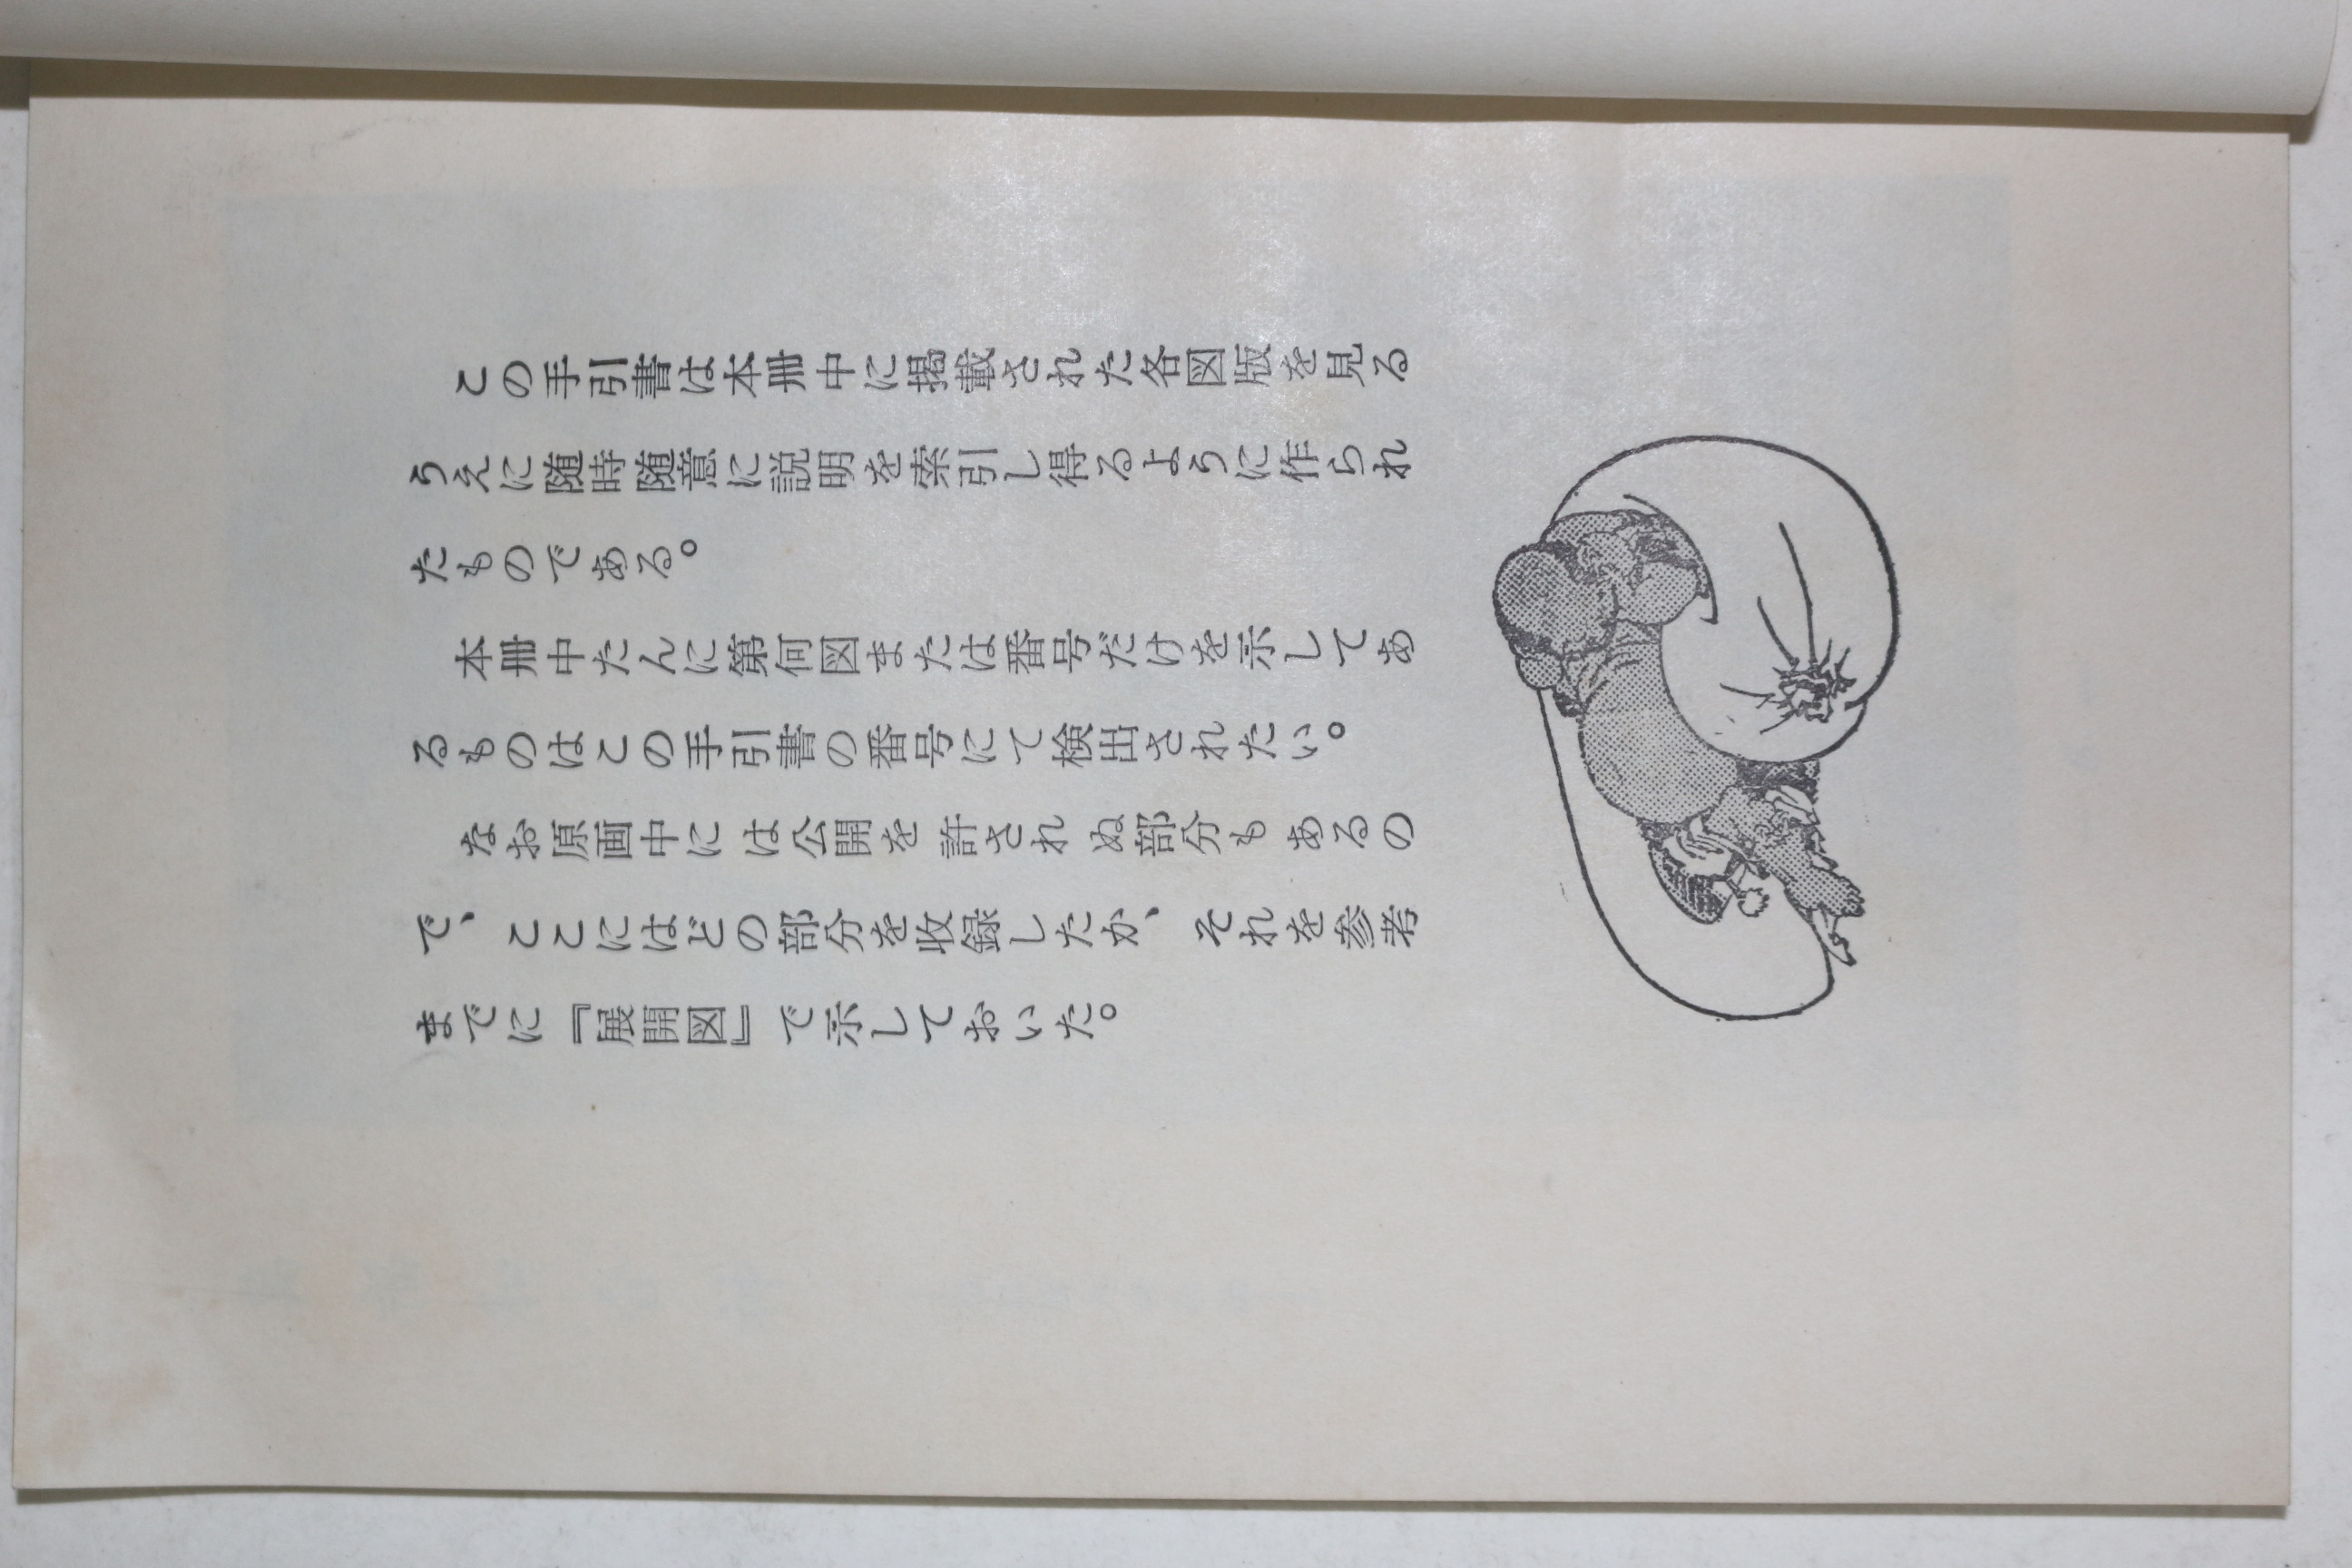 この手引書は本冊中に掲載された各図版を見る
うえに随時随意に説明を索引し得るように作られ
たものである。
本冊中たんに第何図または番号だけを示してあ
るものはこの手引書の番号にて検出されたい。
なお原画中には公開を許されぬ部分もあるの
で、ここにはどの部分を収録したか、それを参考
までに『展開図』で示しておいた。